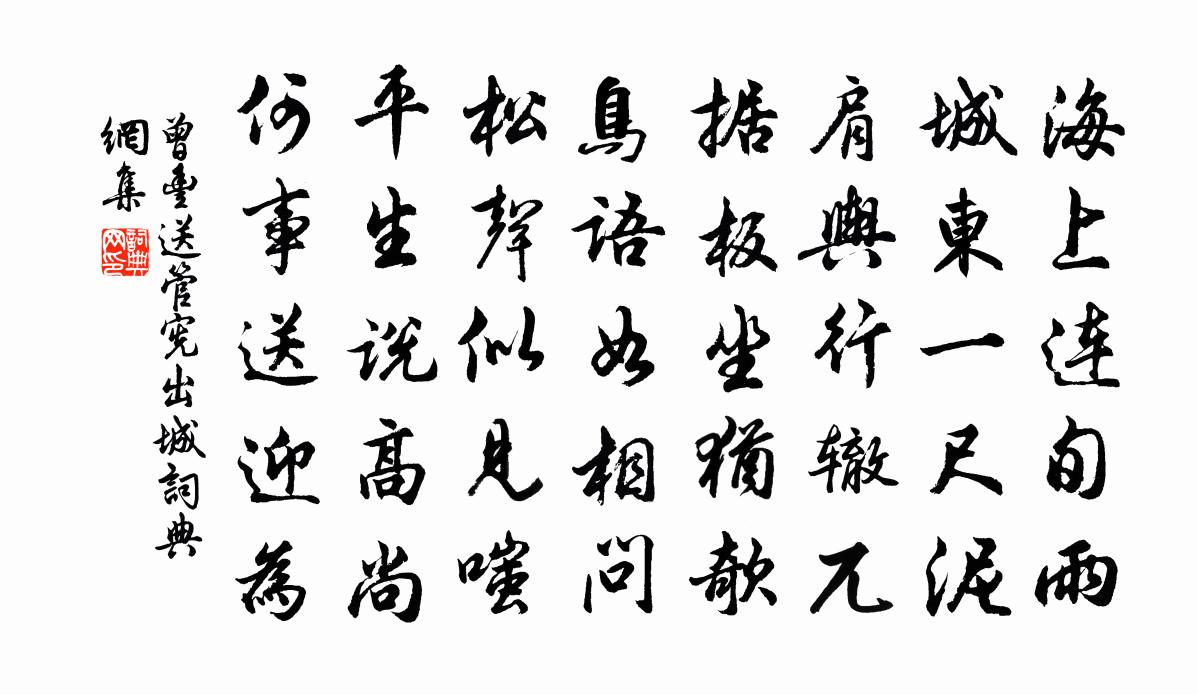 海上连旬雨
城東一尺泥
肩輿行辙兀
据板坐猶欹
鳥語如相問
松聲似見嗤
平生説高尚
何事送迎為
曾豐送管宪出城詞典
網集
詞典
网印